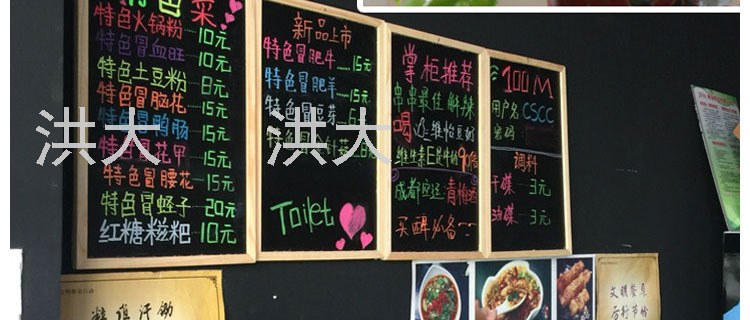 特色菜
特色火锅粉 10元
特色冒血旺 10元
特色土豆粉 8元
特色冒脑花 15元
特色冒鸭肠 15元
特色冒花甲 15元
特色冒腰花 15元
特色冒蛏子 20元
红糖糍粑 10元
新品上市
特色冒肥牛 15元
特色冒肥羊 15元
特色冒豆芽 6元
Toilet
掌柜推荐
串串最佳解辣
喝 维怡豆奶
成都必逛 青梅酒
买醉必备
100M
用户名 CSCC
密码
调料
干碟 3元
油碟 3元
洪大
洪大
文明餐桌
厉行节俭